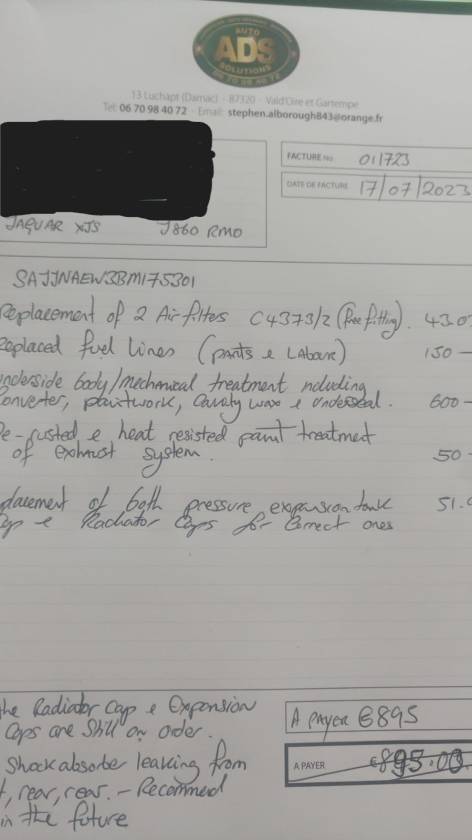 AUTO
ADS
SOLUTIONS
06 70 98 40 72
13 Luchapt (Darnac) - 87320 - Val d'Oire et Gartempe
Tel: 06 70 98 40 72 - Email: stephen.alborough843@orange.fr
FACTURE No 011723
DATE DE FACTURE 17/07/2023
JAGUAR XJS J860 RMO
SAJJNAEW3BM175301
Replacement of 2 Air filters C4373/2 (free fitting). 43.0
eplaced fuel lines (parts & Labour) 150 -
nderside body/mechanical treatment including
onverter, paintwork, Cavity wax & Underseal. 600 -
e-rusted & heat resisted paint treatment
of exhaust system. 50 -
placement of both pressure expansion tank 51.
ap & Radiator Caps for Correct ones
the Radiator Cap & Expansion
Caps are still on order.
Shockabsorber leaking from
, rear, rear. - Recommend
in the future
A PAYER €895
A PAYER €895.00